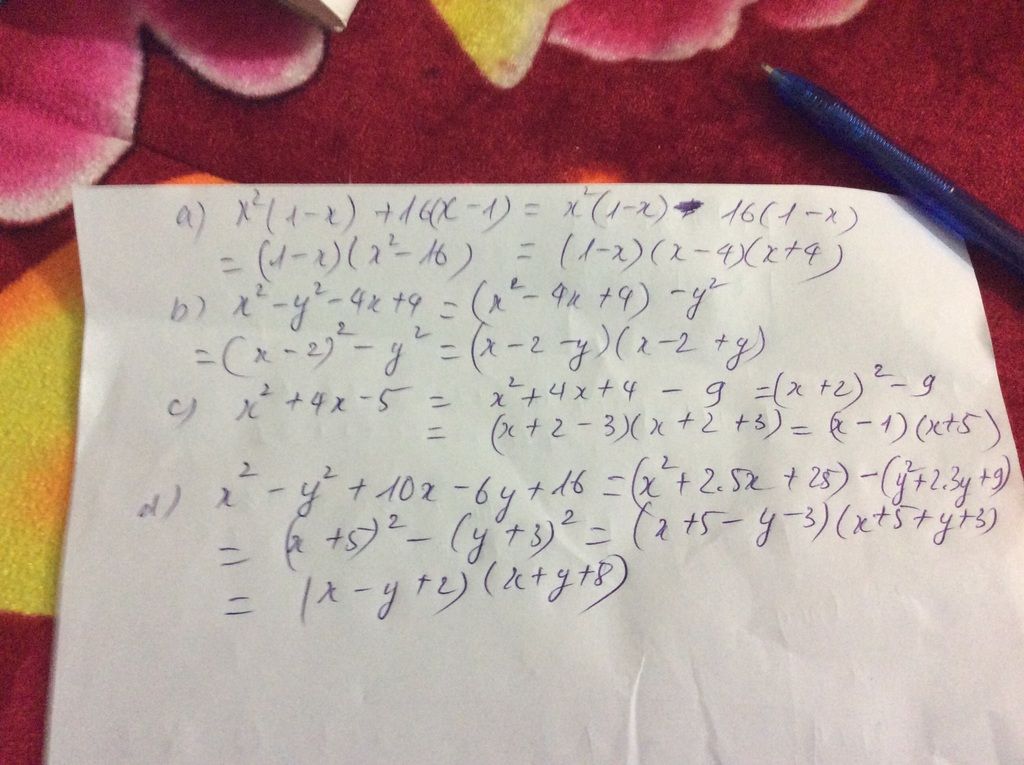 a) x²(1-x) +16(x-1) = x²(1-x) - 16(1-x)
= (1-x)(x²-16) = (1-x)(x-4)(x+4)
b) x²-y²-4x+4 = (x²-4x+4) -y²
= (x-2)²-y² = (x-2-y)(x-2+y)
c) x²+4x-5 = x²+4x+4 - 9 = (x+2)²-9
= (x+2-3)(x+2+3) = (x-1)(x+5)
d) x²-y²+10x-6y+16 = (x²+2.5x+25)-(y²+2.3y+9)
= (x+5)²-(y+3)² = (x+5-y-3)(x+5+y+3)
= (x-y+2)(x+y+8)